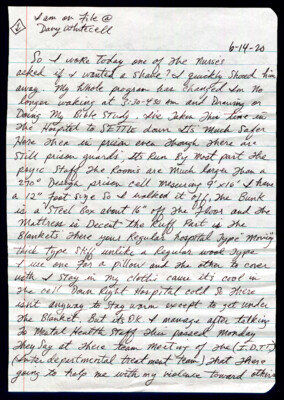 I am on File @
Dary Whitecell
6-14-20
So I woke today one of The Nurses
asked if I wanted a Shave? I quickly Shoed him
away. My Whole program has Changed Im No
longer waking at 3:30-4:30 am and Drawing or
Doing My Bible Study. Ive Taken This time in
The Hospital to SETTLE down Its Much Safer
Here Then in prison even Though There is
Still prison guards, Its Run By Most part The
psyc Staff The Rooms are Much larger Than a
270° Design prison cell Mesuring 9'x16' I have
a 12" Foot size So I walked it off, The Bunk
is a Steel Box about 16" off The Floor and The
Mattress is Decent The Ruff Part is The
Blankets There your Regular hospital Type
Thick Type Stiff unlike a Regular wool Type
I use one For a pillow and The other to cover
with I Sleep in My Cloths cause its cool in
The Cell Darn Right Hospital cold &
isnt anyway to Stay warm except to get under
The Blanket. But its OK I manage after talking
to Mental Health Staff This passed Monday
They Say at There team Meeting of The (I.D.T.T)
(Inter departmental treatment team) That There
going to help me with my violence toward others